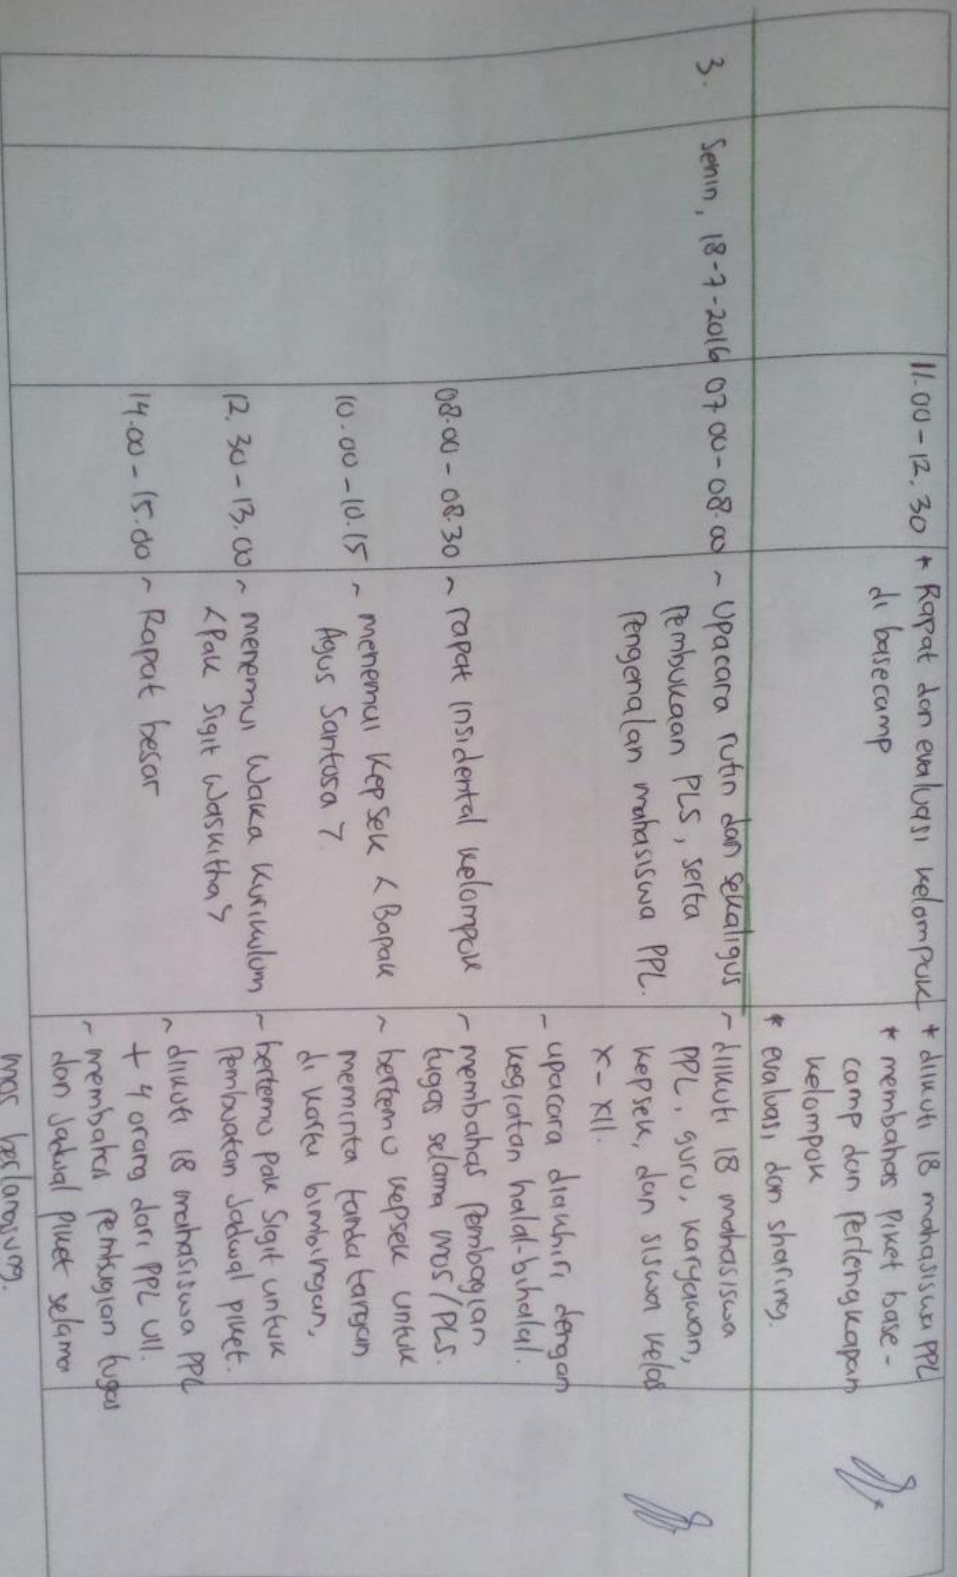 11.00 - 12.30 * Rapat dan evaluasi kelompok * diikuti 18 mahasiswa PPL
di basecamp * membahas piket base -
camp dan perlengkapan
kelompok
* evaluasi, dan sharing.
3. Senin, 18-7-2016 07.00 - 08.00 ~ Upacara rutin dan sekaligus ~ diikuti 18 mahasiswa
Pembukaan PLS, serta PPL, guru, karyawan,
Pengenalan mahasiswa PPL. kepsek, dan siswa kelas
X - XII.
- upacara diakhiri dengan
kegiatan halal-bihalal.
08.00 - 08.30 ~ rapat insidental kelompok ~ membahas pembagian
tugas selama mos/PLS.
10.00 - 10.15 ~ menemui Kepsek < Bapak ~ bertemu kepsek untuk
Agus Santosa >. meminta tanda tangan
di kartu bimbingan,
12.30 - 13.00 ~ menemui Waka Kurikulum ~ bertemu pak Sigit untuk
<Pak Sigit Waskitha> Pembuatan Jadwal piket.
14.00 - 15.00 ~ Rapat besar ~ diikuti 18 mahasiswa PPL
+ 4 orang dari PPL UII.
~ membahas pembagian tugas
dan Jadwal piket selama
mos berlangsung.